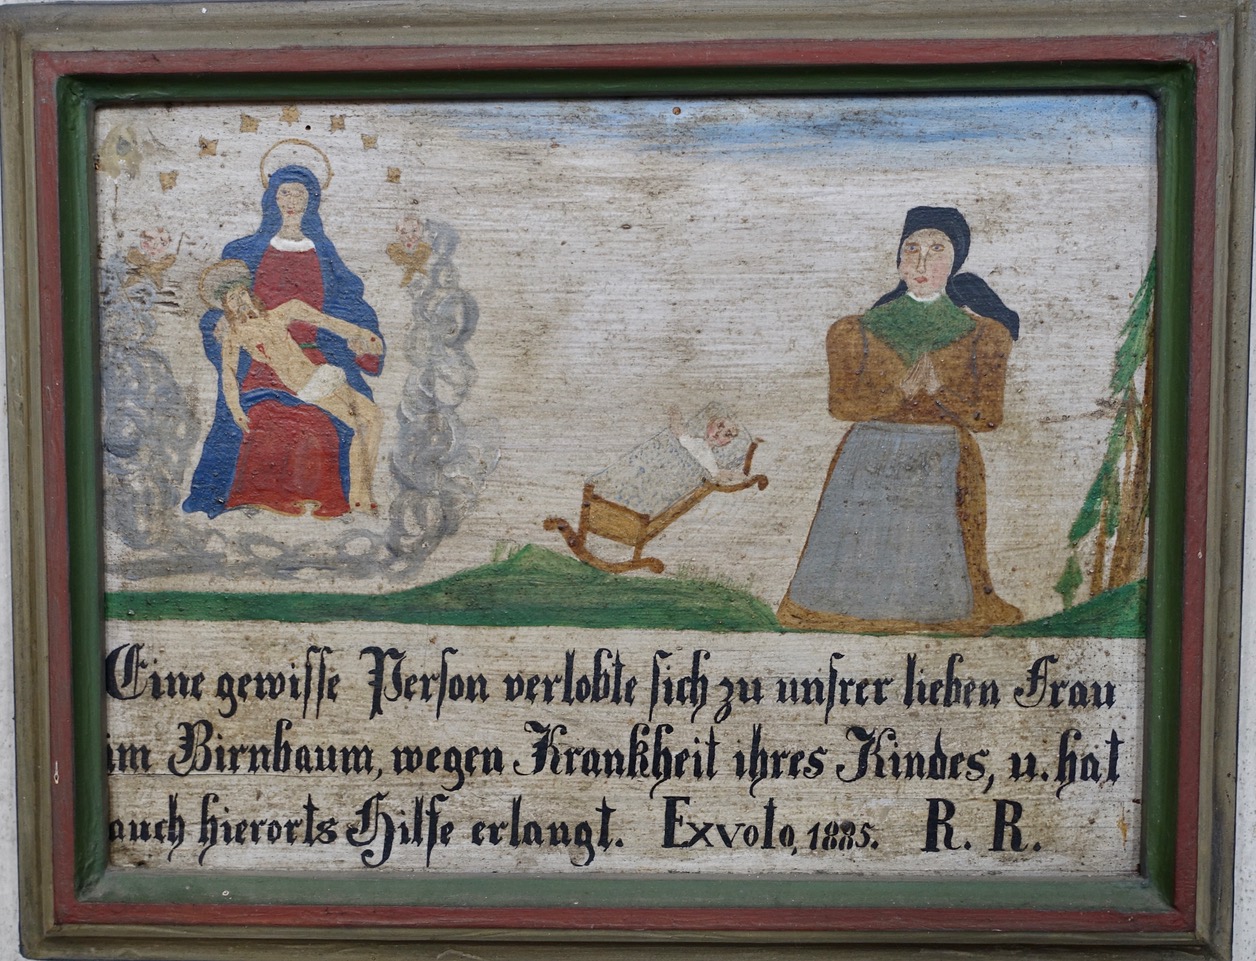 Eine gewisse Person verlobte sich zu unsrer lieben Frau
im Birnbaum, wegen Krankheit ihres Kindes, u. hat
auch hierorts Hilfe erlangt. Exvoto, 1885. R. R.